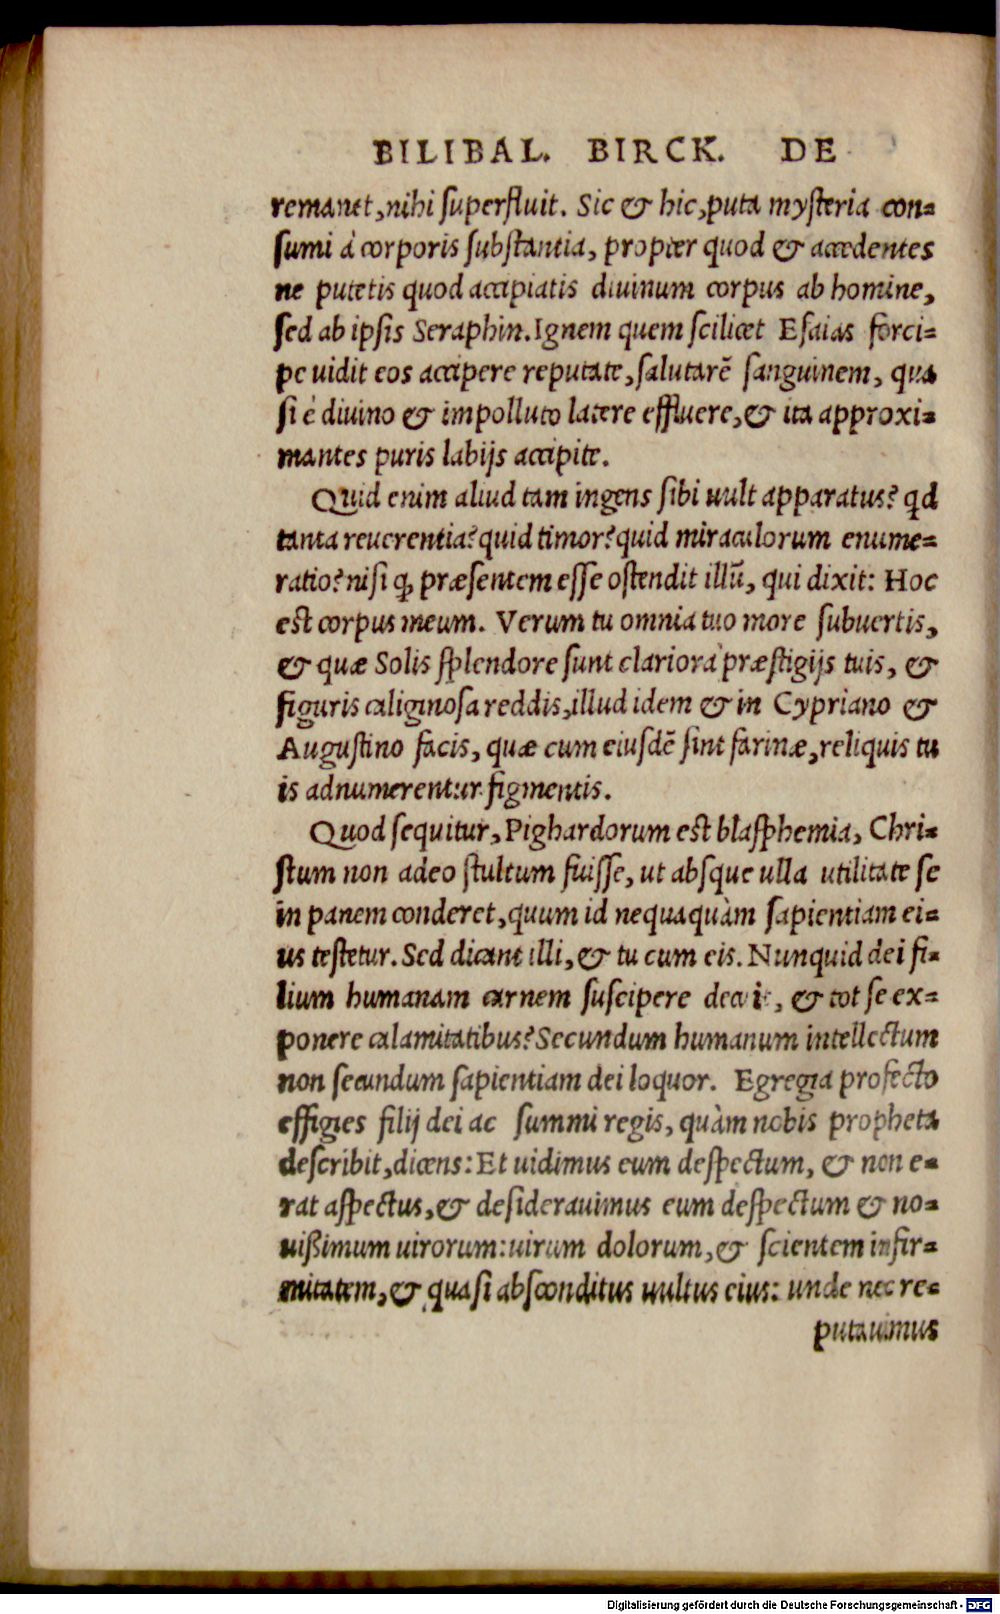 BILIBAL. BIRCK. DE
remanet, nihi superfluit. Sic & hic, puta mysteria con=
sumi à corporis substantia, propter quod & accedentes
ne putetis quod accipiatis diuinum corpus ab homine,
sed ab ipsis Seraphin. Ignem quem scilicet Esaias forci=
pe uidit eos accipere reputate, salutarē sanguinem, qua
si è diuino & impolluto latere effluere, & ita approxi=
mantes puris labijs accipite.
Quid enim aliud tam ingens sibi uult apparatus? qd
tanta reuerentia? quid timor? quid miraculorum enume=
ratio? nisi ꝙ præsentem esse ostendit illū, qui dixit: Hoc
est corpus meum. Verum tu omnia tuo more subuertis,
& quæ Solis splendore sunt clariora præstigijs tuis, &
figuris caliginosa reddis, illud idem & in Cypriano &
Augustino facis, quæ cum eiusdē sint farinæ, reliquis tu
is adnumerentur figmentis.
Quod sequitur, Pighardorum est blasphemia, Chri=
stum non adeo stultum fuisse, ut absque ulla utilitate se
in panem conderet, quum id nequaquàm sapientiam ei=
us testetur. Sed dicant illi, & tu cum eis. Nunquid dei fi=
lium humanam carnem suscipere decuit, & tot se ex=
ponere calamitatibus? Secundum humanum intellectum
non secundum sapientiam dei loquor. Egregia profecto
effigies filij dei ac summi regis, quàm nobis propheta
describit, dicens: Et uidimus eum despectum, & non e=
rat aspectus, & desiderauimus eum despectum & no=
uißimum uirorum: uirum dolorum, & scientem infir=
mitatem, & quasi absconditus uultus eius: unde nec re=
putauimus
Digitalisierung gefördert durch die Deutsche Forschungsgemeinschaft - DFG